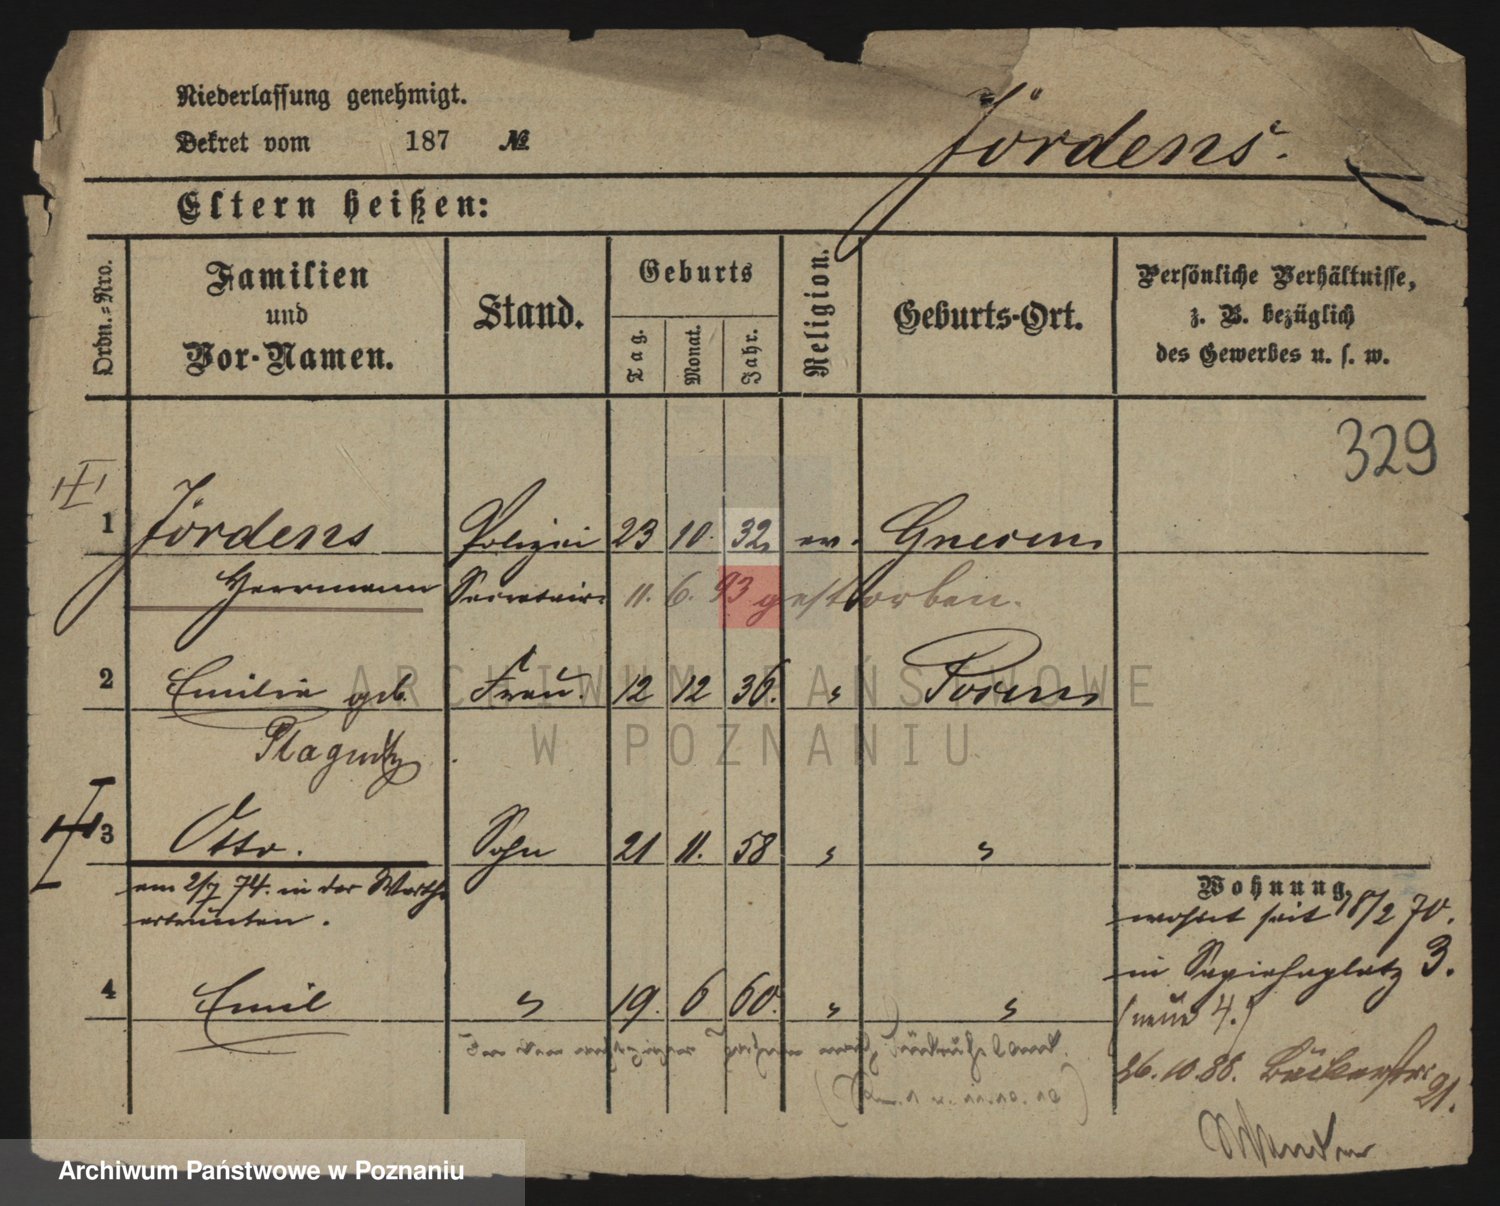 Niederlassung genehmigt.
Dekret vom 187 №
Jördens.
Eltern heißen:
Ordn.-Nro.
Familien
und
Vor-Namen.
Stand.
Geburts
Tag.
Monat.
Jahr.
Religion.
Geburts-Ort.
Persönliche Verhältnisse,
z. B. bezüglich
des Gewerbes u. s. w.
329
1 Jördens Polizei 23 10. 32. ev. Gnesen
Herrmann Secretair. 11. 6. 93 gestorben.
2 Emilie geb. Frau. 12 12 36. " Posen
3 Otto. Sohn 21 11. 58 " "
am 2/7 74. in der Warthe
ertrunken.
4 Emil " 19. 6 60. " "
Wohnung,
wohnt seit 18/2 70.
in Sapiehaplatz 3.
(neue 4.)
26.10.88. Bäckerstr.
21.
ARCHIWUM PAŃSTWOWE
W POZNANIU
Archiwum Państwowe w Poznaniu